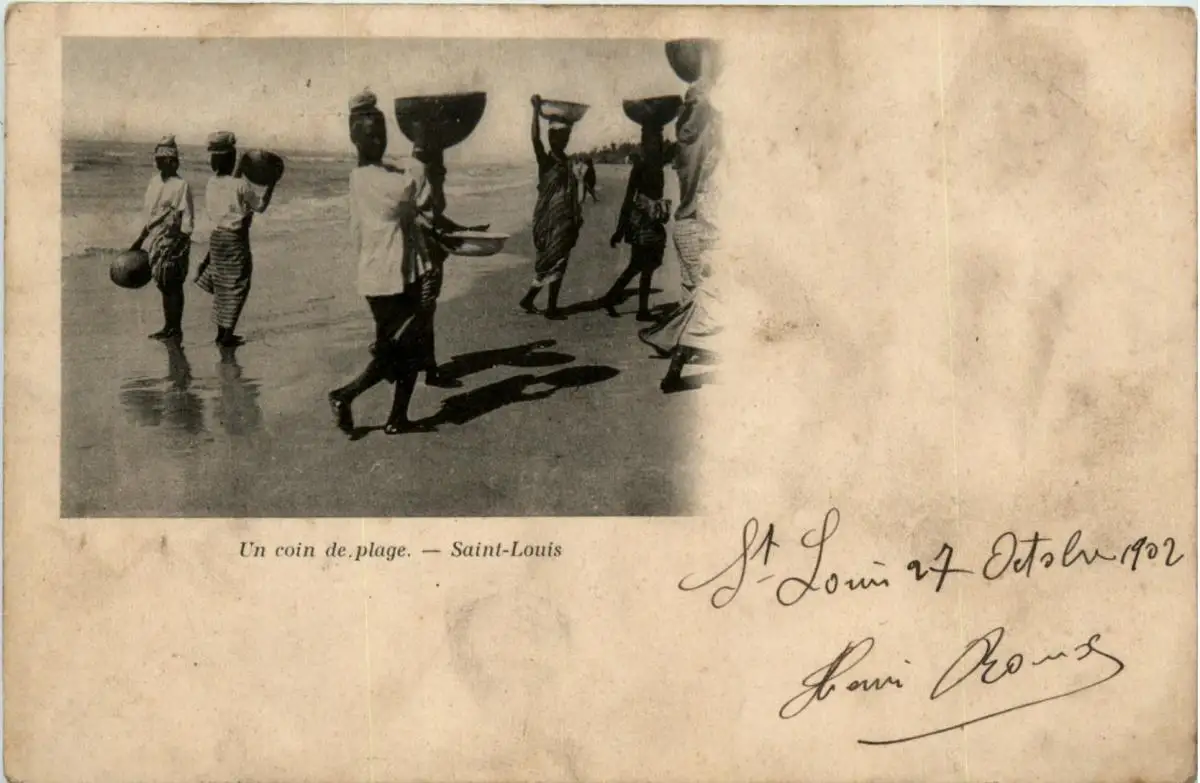 Un coin de plage. — Saint-Louis
St Louis 27 Octobre 1902
Henri Roux